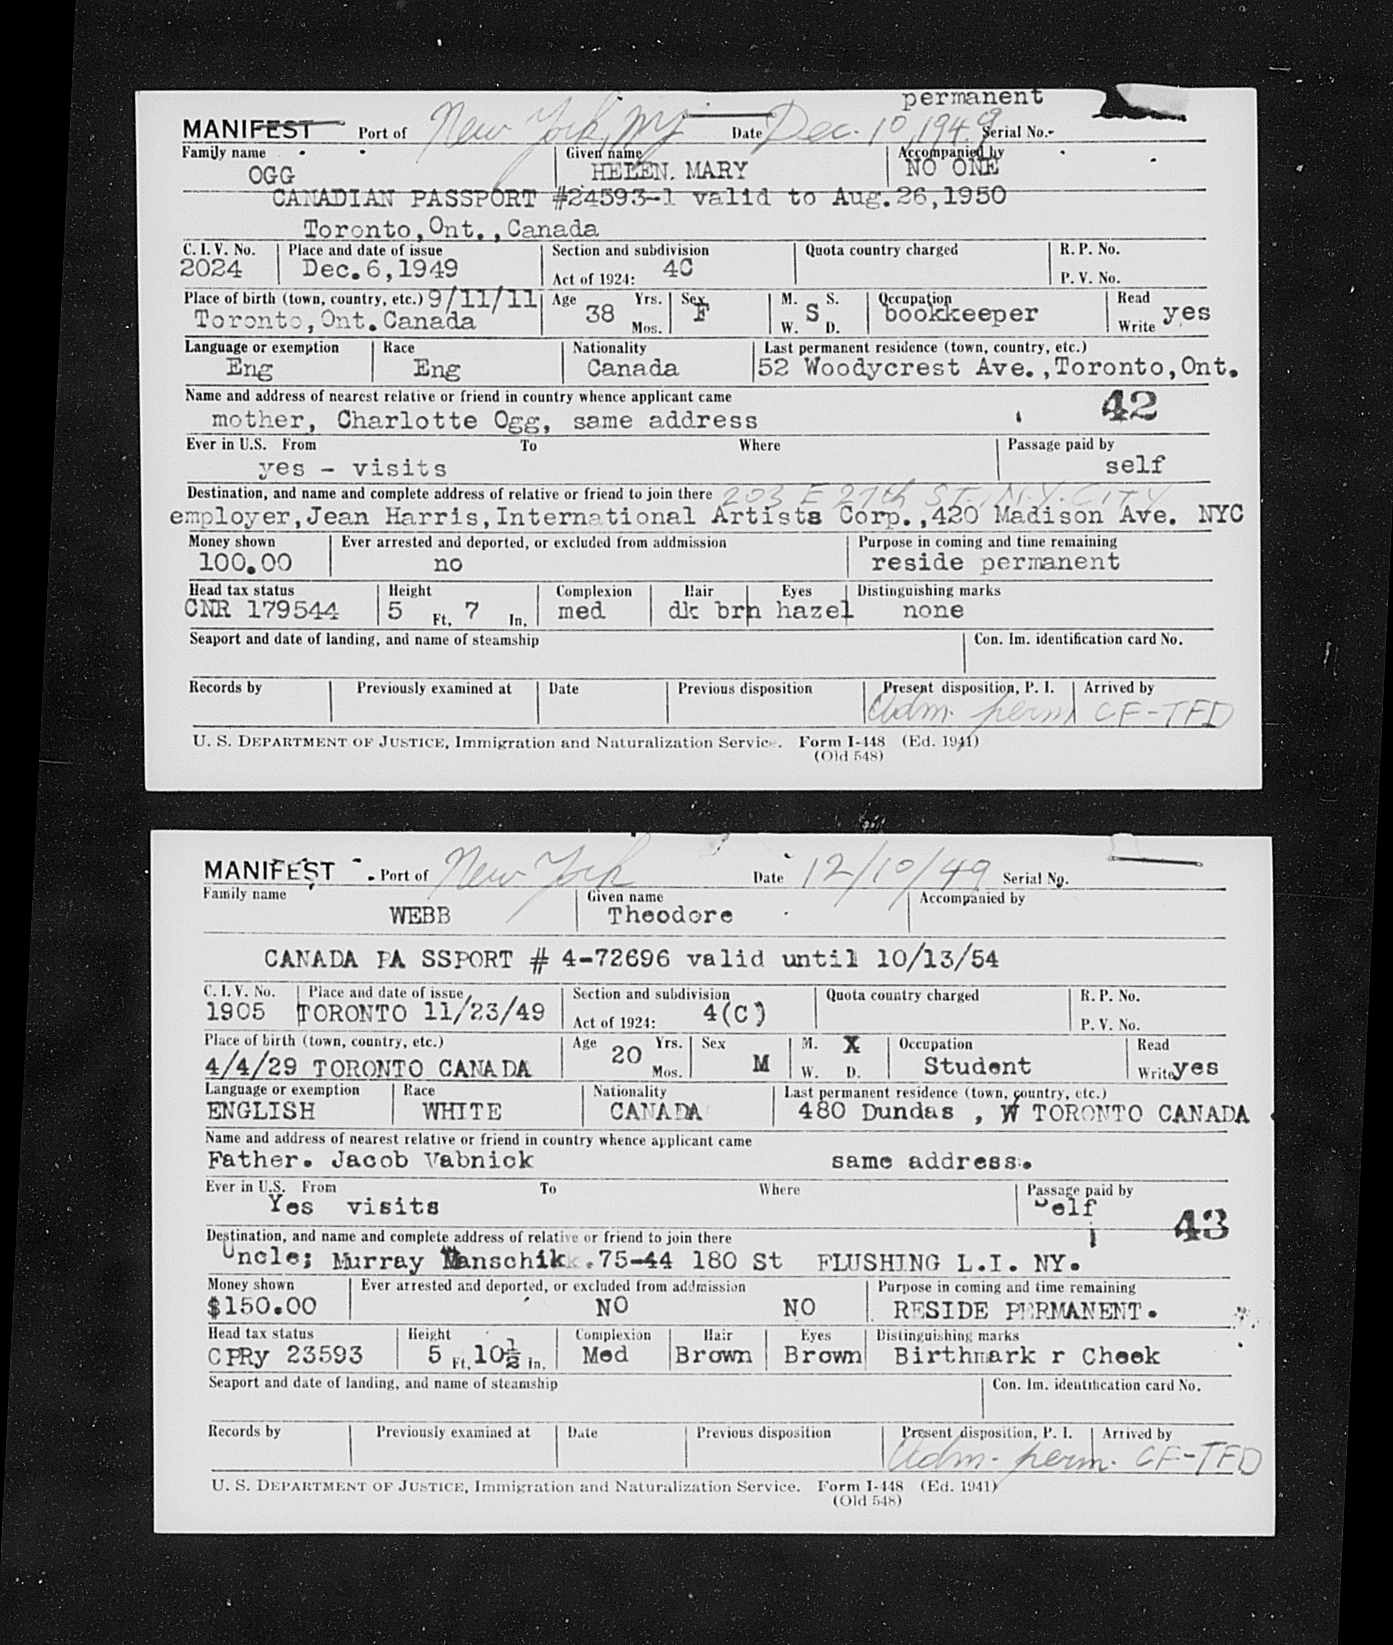 permanent
MANIFEST Port of New York, NY Date Dec. 10, 1949 Serial No.
Family name Given name Accompanied by
OGG HELEN. MARY NO ONE
CANADIAN PASSPORT #24593-1 valid to Aug.26,1950
Toronto,Ont.,Canada
C. I. V. No. Place and date of issue Section and subdivision Quota country charged R. P. No.
2024 Dec.6,1949 Act of 1924: 4C P. V. No.
Place of birth (town, country, etc.) 9/11/11 Age Yrs. Sex M. S. Occupation Read
Toronto,Ont.Canada 38 Mos. F W. S D. bookkeeper Write yes
Language or exemption Race Nationality Last permanent residence (town, country, etc.)
Eng Eng Canada 52 Woodycrest Ave.,Toronto,Ont.
Name and address of nearest relative or friend in country whence applicant came 42
mother, Charlotte Ogg, same address
Ever in U.S. From To Where Passage paid by
yes - visits self
Destination, and name and complete address of relative or friend to join there 203 E 27th ST., N.Y. CITY
employer,Jean Harris,International Artists Corp.,420 Madison Ave. NYC
Money shown Ever arrested and deported, or excluded from addmission Purpose in coming and time remaining
100.00 no reside permanent
Head tax status Height Complexion Hair Eyes Distinguishing marks
CNR 179544 5 Ft. 7 In. med dk brn hazel none
Seaport and date of landing, and name of steamship Con. Im. identification card No.
Records by Previously examined at Date Previous disposition Present disposition, P. I. Arrived by
Adm. perm CF-TFD
U. S. DEPARTMENT OF JUSTICE, Immigration and Naturalization Service. Form I-448 (Ed. 1941)
(Old 548)
MANIFEST Port of New York Date 12/10/49 Serial No.
Family name Given name Accompanied by
WEBB Theodore
CANADA PA SSPORT # 4-72696 valid until 10/13/54
C. I. V. No. Place and date of issue Section and subdivision Quota country charged R. P. No.
1905 TORONTO 11/23/49 Act of 1924: 4(C) P. V. No.
Place of birth (town, country, etc.) Age Yrs. Sex M. X Occupation Read
4/4/29 TORONTO CANADA 20 Mos. M W. D. Student Write yes
Language or exemption Race Nationality Last permanent residence (town, country, etc.)
ENGLISH WHITE CANADA 480 Dundas , W TORONTO CANADA
Name and address of nearest relative or friend in country whence applicant came
Father. Jacob Vabnick same address.
Ever in U.S. From To Where Passage paid by
Yes visits Self 43
Destination, and name and complete address of relative or friend to join there
Uncle; Murray Manschik.75-44 180 St FLUSHING L.I. NY.
Money shown Ever arrested and deported, or excluded from addmission Purpose in coming and time remaining
$150.00 NO NO RESIDE PERMANENT.
Head tax status Height Complexion Hair Eyes Distinguishing marks
CPRy 23593 5 Ft. 10½ In. Med Brown Brown Birthmark r Cheek
Seaport and date of landing, and name of steamship Con. Im. identification card No.
Records by Previously examined at Date Previous disposition Present disposition, P. I. Arrived by
Adm. perm. CF-TFD
U. S. DEPARTMENT OF JUSTICE, Immigration and Naturalization Service. Form I-448 (Ed. 1941)
(Old 548)